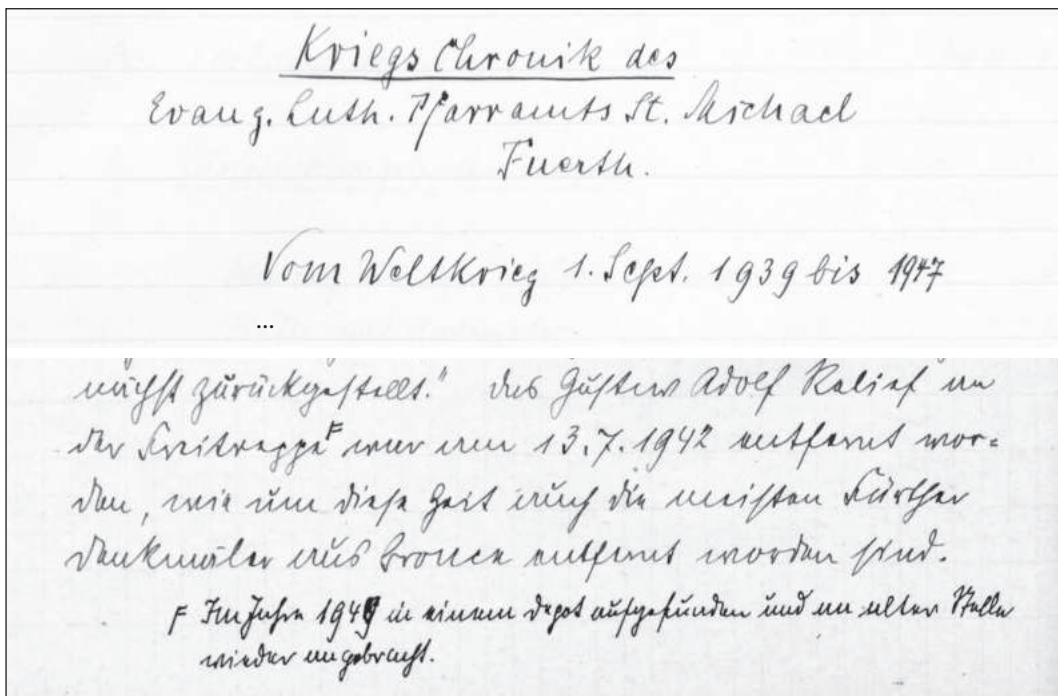 Kriegs Chronik des
Evang. Luth. Pfarramts St. Michael
Fuerth.
Vom Weltkrieg 1. Sept. 1939 bis 1947
...
nächst zurückgestellt." Das Gustav Adolf Relief an
der Freitreppe F war am 13.7.1942 entfernt wor=
den, wie um diese Zeit auch die meisten Fürther
Denkmäler aus Bronce entfernt worden sind.
F Im Jahre 1949 in einem Depot aufgefunden und an alter Stelle
wieder angebracht.